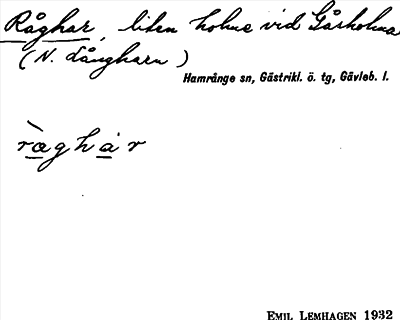 Råghar, liten holme vid Gåsholma
(N. Långharn)
Hamrånge sn, Gästrikl. ö. tg, Gävleb. l.
r̀a̲g h å̲ r
EMIL LEMHAGEN 1932